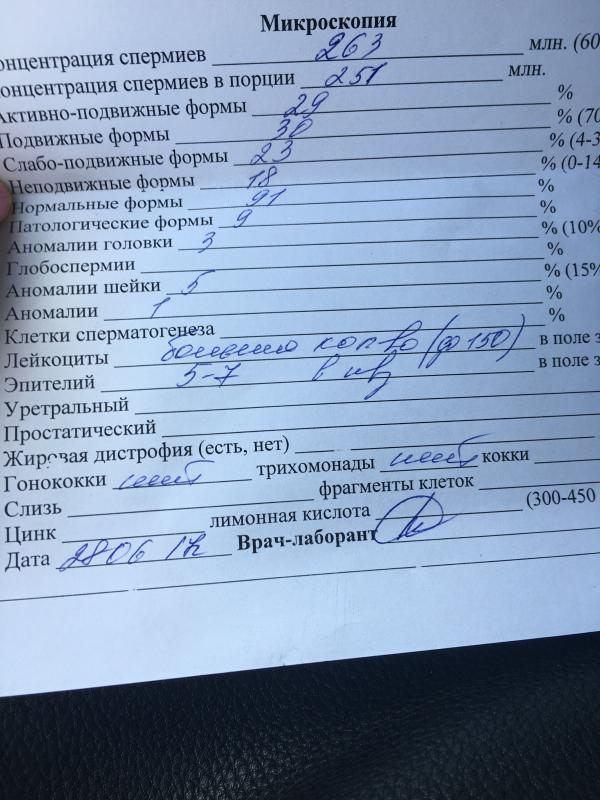 Микроскопия
онцентрация спермиев 263 млн. (60
онцентрация спермиев в порции 251 млн.
Активно-подвижные формы 29 %
Подвижные формы 30 % (70
Слабо-подвижные формы 23 % (4-3
Неподвижные формы 18 % (0-14
Нормальные формы 91 %
Патологические формы 9 %
Аномалии головки 3 % (10%
Глобоспермии %
Аномалии шейки 5 % (15%
Аномалии 1 %
Клетки сперматогенеза %
Лейкоциты большое кол-во (до 150) в поле з
Эпителий 5-7 в п/з в поле з
Уретральный
Простатический
Жировая дистрофия (есть, нет)
Гонококки нет трихомонады нет кокки
Слизь фрагменты клеток
Цинк лимонная кислота (300-450
Дата 2806 Врач-лаборант